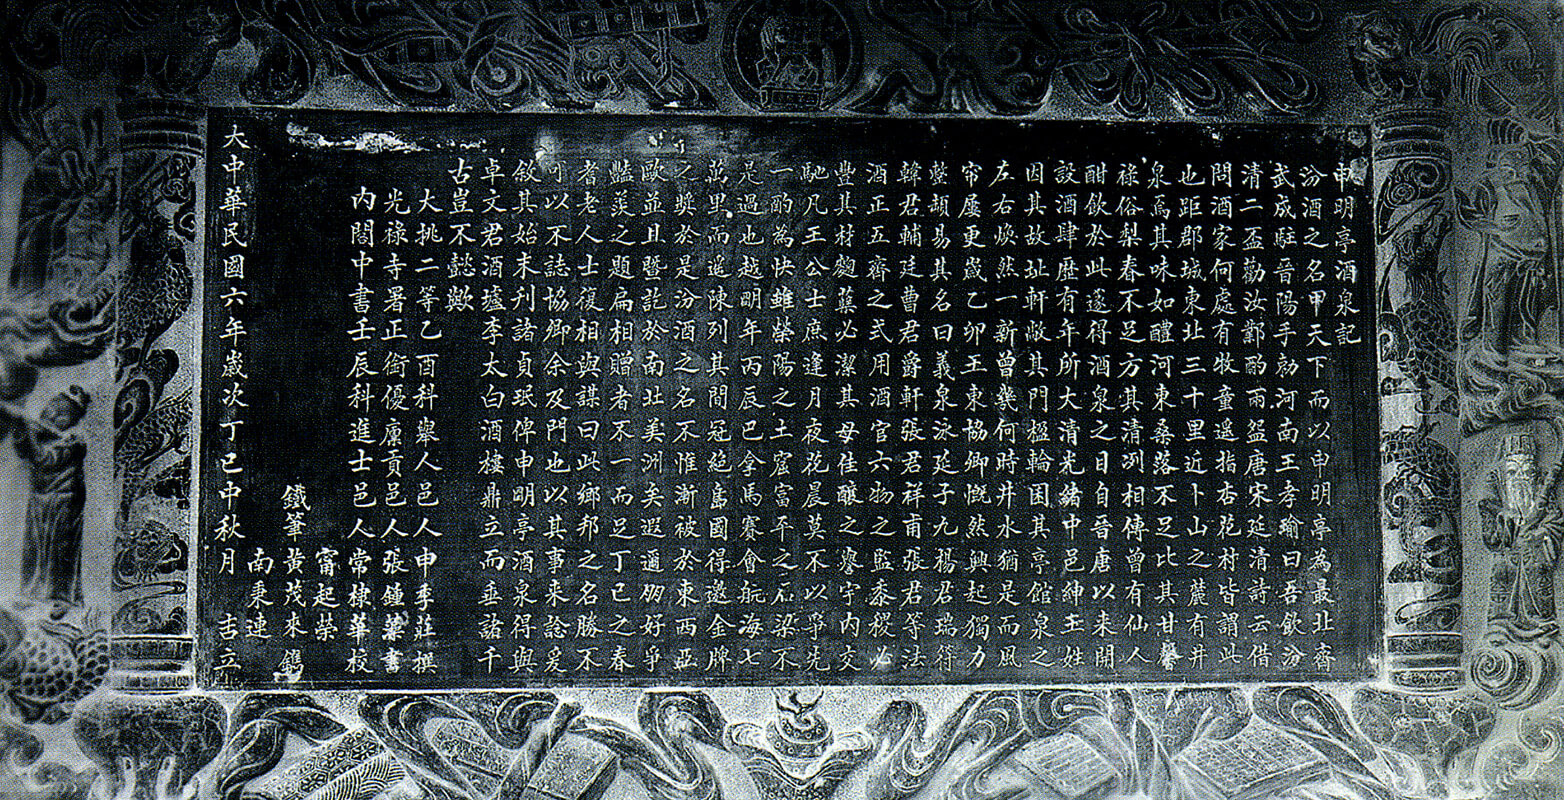 申明亭酒泉記
汾酒之名甲天下而以申明亭為最北齊
武成駐晉陽手勅河南王孝瑜曰吾飲汾
清二盃勸汝鄴酌兩盌唐宋延清詩云借
問酒家何處有牧童遥指杏花村皆謂此
也距郡城東北三十里近卜山之麓有井
泉焉其味如醴河東桑落不足比其甘馨
祿俗梨春不足方其清冽相傳曾有仙人
酣飲於此遂得酒泉之目自晉唐以来開
設酒肆歷有年所大清光緒中邑紳王姓
因其故址軒敞其門楹輪囷其亭館泉之
左右煥然一新曾幾何時井水猶是而風
帘屢更嵗乙卯王東協卿慨然興起獨力
整頓易其名曰義泉泳延子九楊君瑞符
韓君輔廷曹君爵軒張君祥甫張君等法
酒正五齊之式用酒官六物之監黍稷必
豐其材麯蘖必潔其母佳釀之譽宇内交
馳凡王公士庶逢月夜花晨莫不以爭先
一酌為快雖滎陽之土窟富平之石梁不
是過也越明年丙辰巴拿馬賽會航海七
萬里而遥陳列其間冠絶島國得邀金牌
之奬於是汾酒之名不惟漸被於東西亞
歐並且暨訖於南北美洲矣遐邇朋好爭
豔羨之題扁相贈者不一而足丁巳之春
耆老人士復相與謀曰此鄉邦之名勝不
可以不誌協卿余及門也以其事来諗爰
敘其始末刋諸貞珉俾申明亭酒泉得與
卓文君酒壚李太白酒樓鼎立而垂諸千
古豈不懿歟
大挑二等乙酉科舉人邑人申季莊撰
光祿寺署正銜優廩貢邑人張鍾蘂書
内閣中書壬辰科進士邑人常棣華校
甯起榮
鐵筆黄茂來鐫
南秉連
大中華民國六年嵗次丁巳中秋月吉立